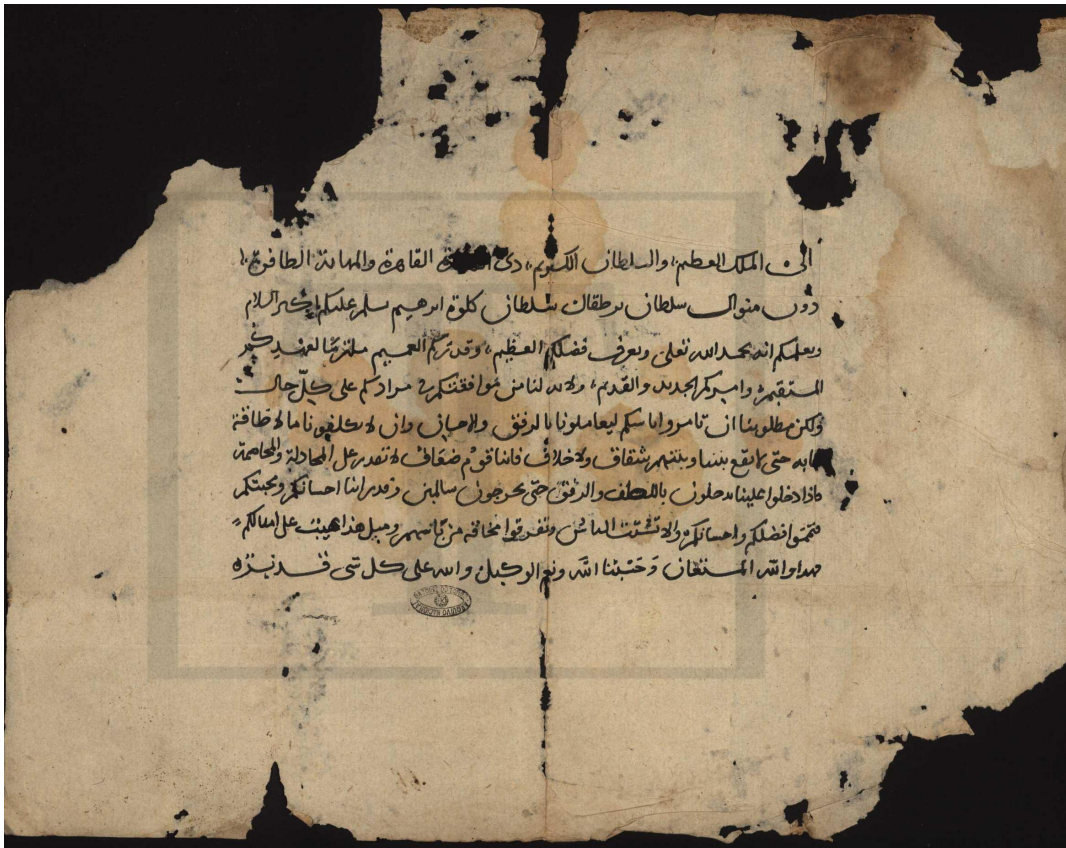 الى الملك العظيم، والسلطان الكريم، ذى القاهرة والمهابة الطافرة
دون منوال سلطان برطقال سلطان كلوة ابرهيم يسلم عليكم باكثر السلام
ويعلمكم انه بحمد الله تعلى ويعرف فضلكم العظيم، وقدركم العميم ملتزما لعهدكم
المستقيم، واميركم الجديد والقديم، ولابد لنا من موافقتكم فى مرادكم على كل حال
ولكن مطلوبنا ان تامروا ناسكم ليعاملونا بالرفق والاحسان وان لا يكلفونا ما لا طاقة
لنا به حتى لا يقع بيننا وبينهم شقاق ولا خلاف فاننا قوم ضعاف لا نقدر على المجادلة والمخاصمة
فاذا دخلوا علينا يدخلون باللطف والرفق حتى يخرجون سالمين وقد راينا احسانكم ومحبتكم
فتمموا فضلكم واحسانكم والا تشتت الناس وتفرقوا مخافة من ومثل هذا على امثالكم
هذا والله المستعان وحسبنا الله ونعم الوكيل والله على كل شى قدير